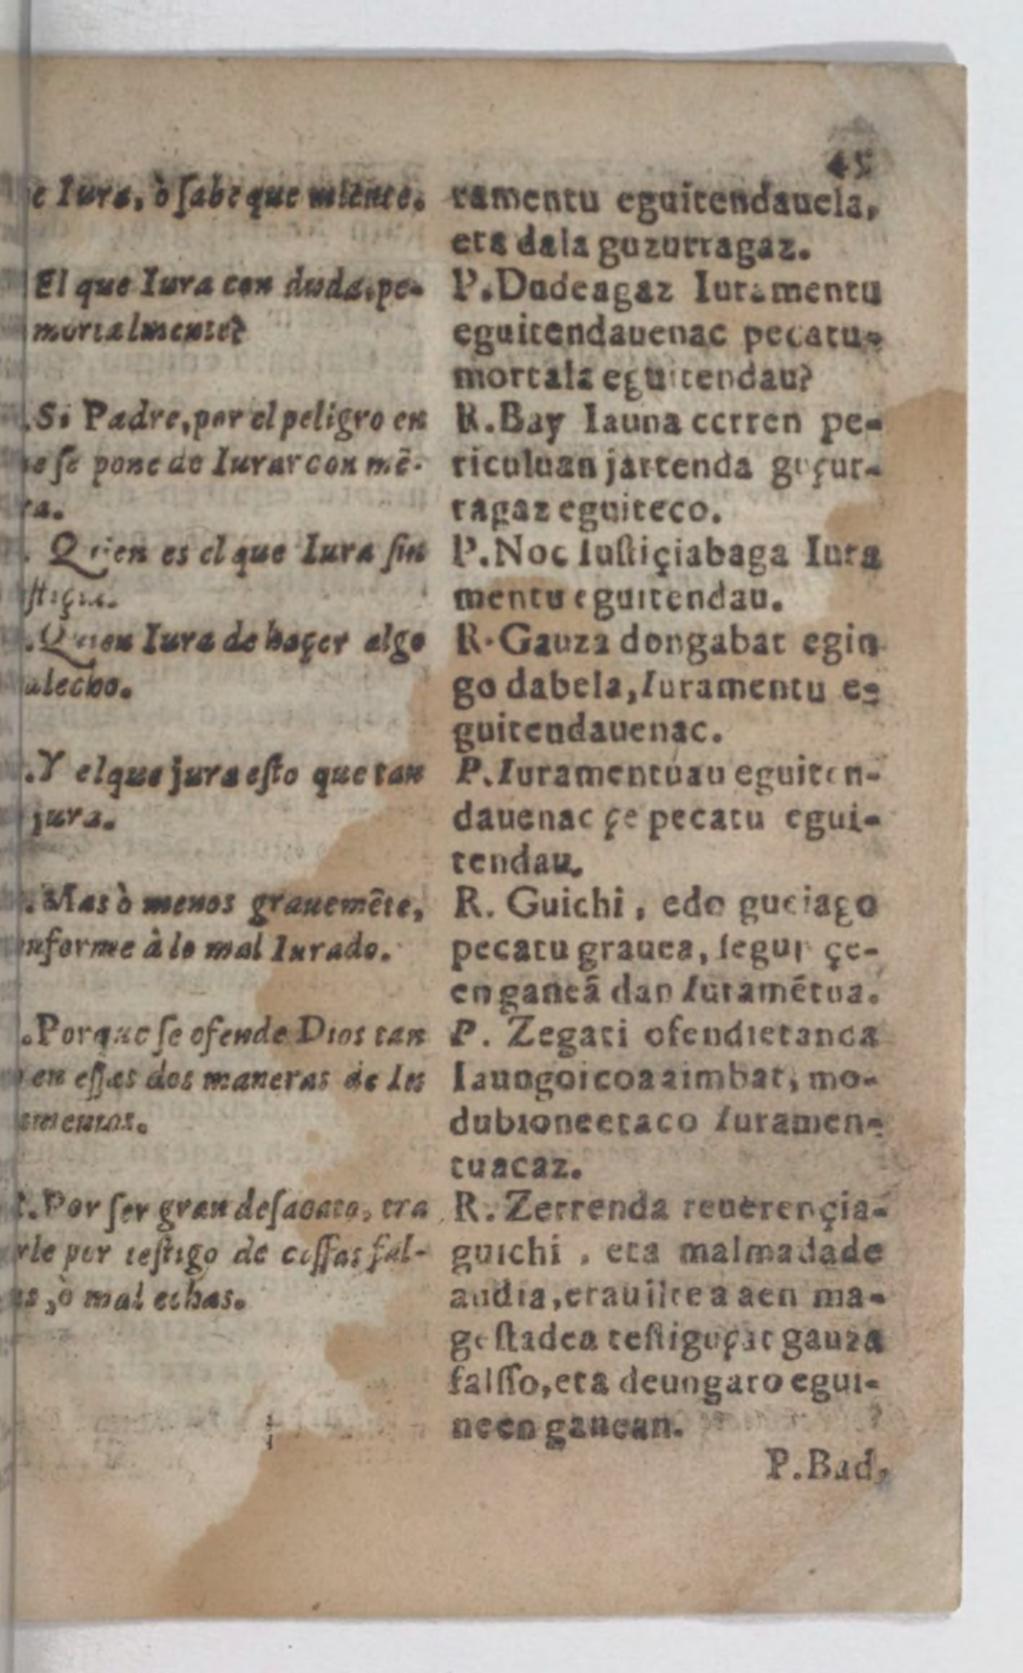 45
e Iura, ò ſabe que miente.
El que Iura con duda, pe-
mortalmente?
.Si Padre, por el peligro en
e ſe pone de Iurar con mē-
ra.
. Quien es el que Iura ſin
ſtiçia.
.Quien Iura de haçer algo
alecho.
.Y el que jura eſto que tan
jura.
.Mas ò menos grauemẽte,
nforme à lo mal Iurado.
.Porque ſe ofende Dios tan
en eſſas dos maneras de Iu
amentos.
.Por ſer gran deſacato, tra
rle por teſtigo de coſſas fal-
as, ò mal echas.
ramentu eguitendauela,
eta dala guzurragaz.
P.Dudeagaz Iuramentu
eguitendauenac pecatu-
mortala eguitendau?
R.Bay Iauna cerren pe-
riculuan jartenda guçur-
ragaz eguiteco.
P.Noc Iuſtiçiabaga Iura
mentu eguitendau.
R.Gauza dongabat egin
go dabela, Iuramentu e-
guitendauenac.
P.Iuramentuau eguiten-
dauenac çe pecatu egui-
tendau.
R. Guichi, edo guciago
pecatu grauea, ſegun çe-
en ganeã dan Iuramẽtua.
P. Zegati ofendietanda
Iaungoicoa aimbat, mo-
dubioneetaco Iuramen-
tuacaz.
R. Zerrenda reuerençia-
guichi, eta malmadade
andia, erauiltea aen ma-
geſtadea teſtiguçat gauza
falſſo, eta deungaro egui-
neen ganean.
P.Bad,